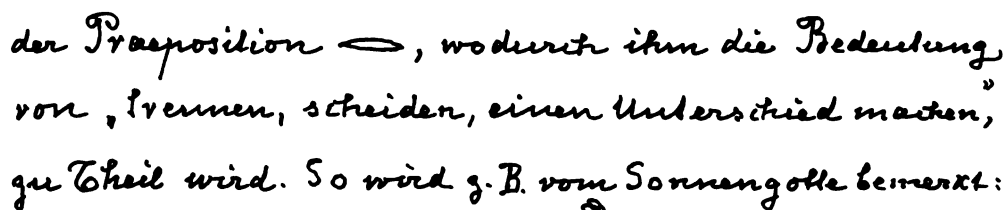 der Praeposition 𓂋, wodurch ihm die Bedeutung
von „trennen, scheiden, einen Unterschied machen”,
zu Theil wird. So wird z. B. vom Sonnengotte bemerkt: